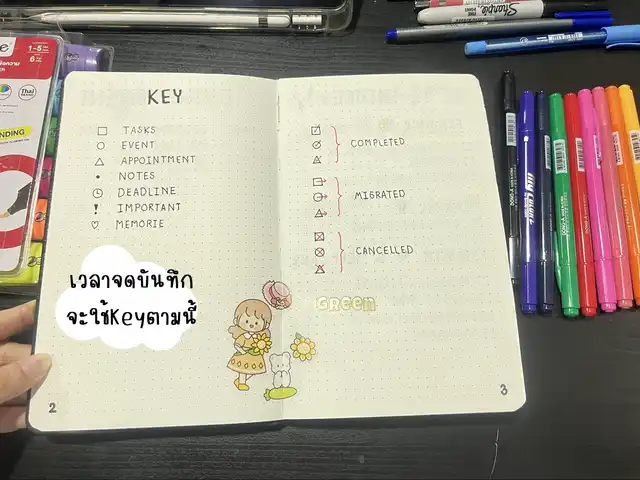 KEY
TASKS
EVENT
APPOINTMENT
NOTES
DEADLINE
IMPORTANT
MEMORIE
COMPLETED
MIGRATED
CANCELLED
เวลาจดบันทึก
จะใช้Keyตามนี้
GREEN
2
3
Sharpie
1-5
6
Thai
NDING